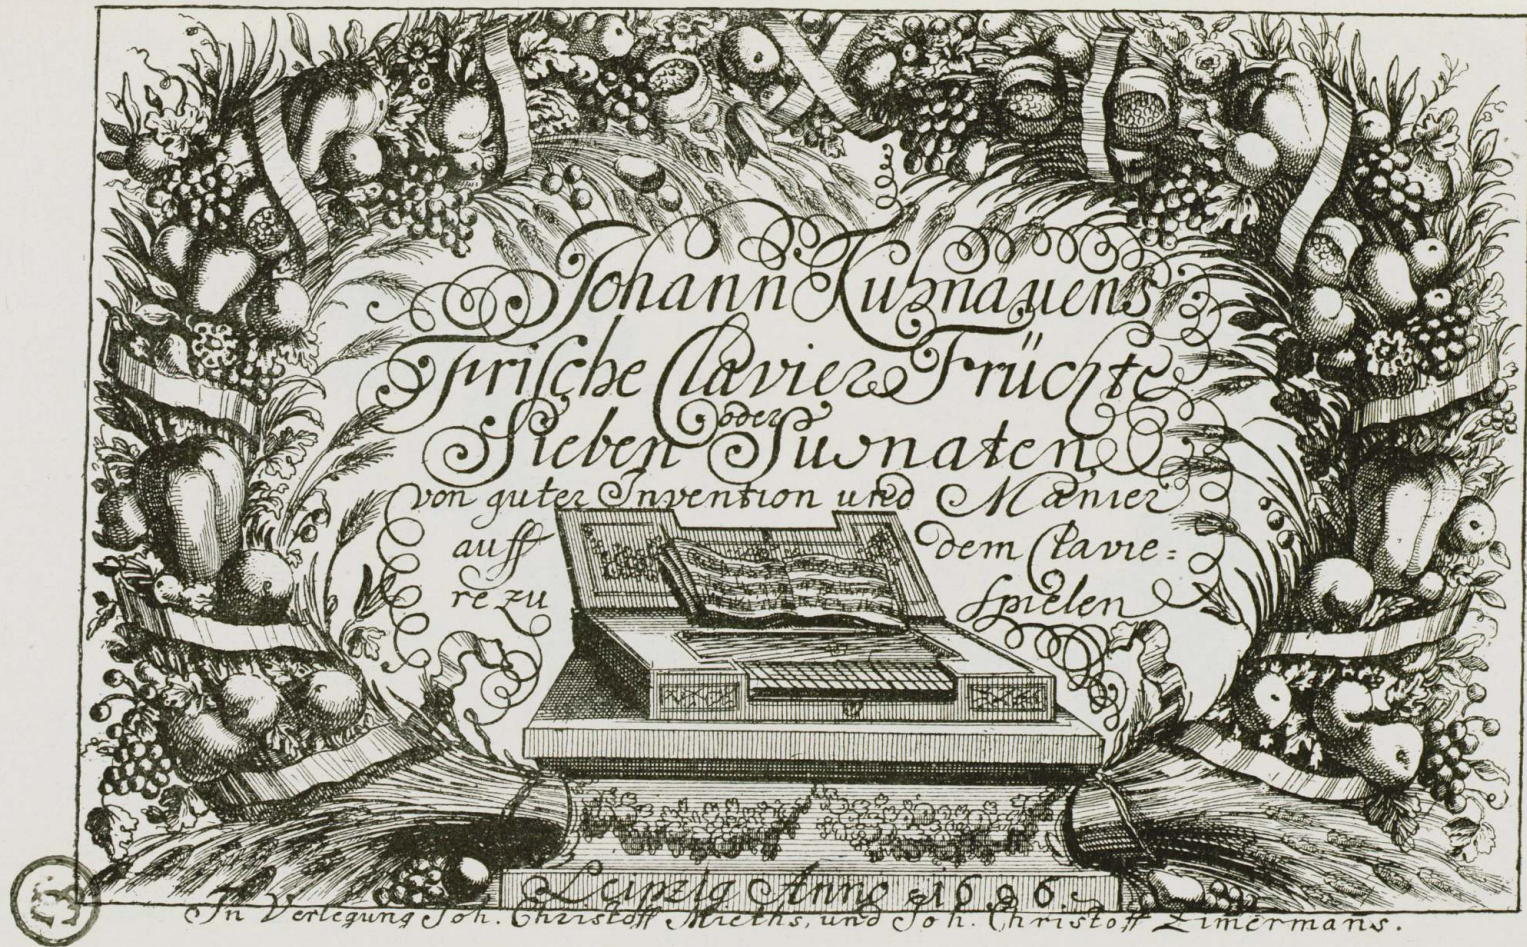 Johann Kuhnauens
Frische Clavier Früchte
oder
Sieben Suonaten
von guter Invention und Manier
auff dem Clavie=
re zu spielen
Leipzig Anno 1696.
In Verlegung Joh. Christoff Mieths, und Joh. Christoff Zimermans.